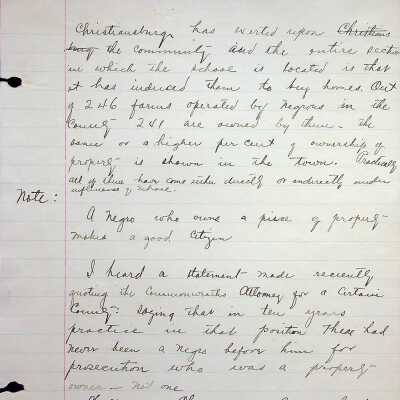 Christiansburg, has exerted upon Christians
burg the community and the entire section
in which the school is located is that
it has induced them to buy homes. Out
of 246 farms operated by Negroes in the
County 241 are owned by them. The
same or a higher per cent of ownership of
property is shown in the town. Practically
all of these have come either directly or indirectly under
influence of school.
Note:
A Negro who owns a piece of property
makes a good Citizen
I heard a statement made recently
quoting the Commonwealths Attorney for a Certain
County: Saying that in ten years
practice in that position there had
never been a Negro before him for
prosecution who was a property
owner — Not one